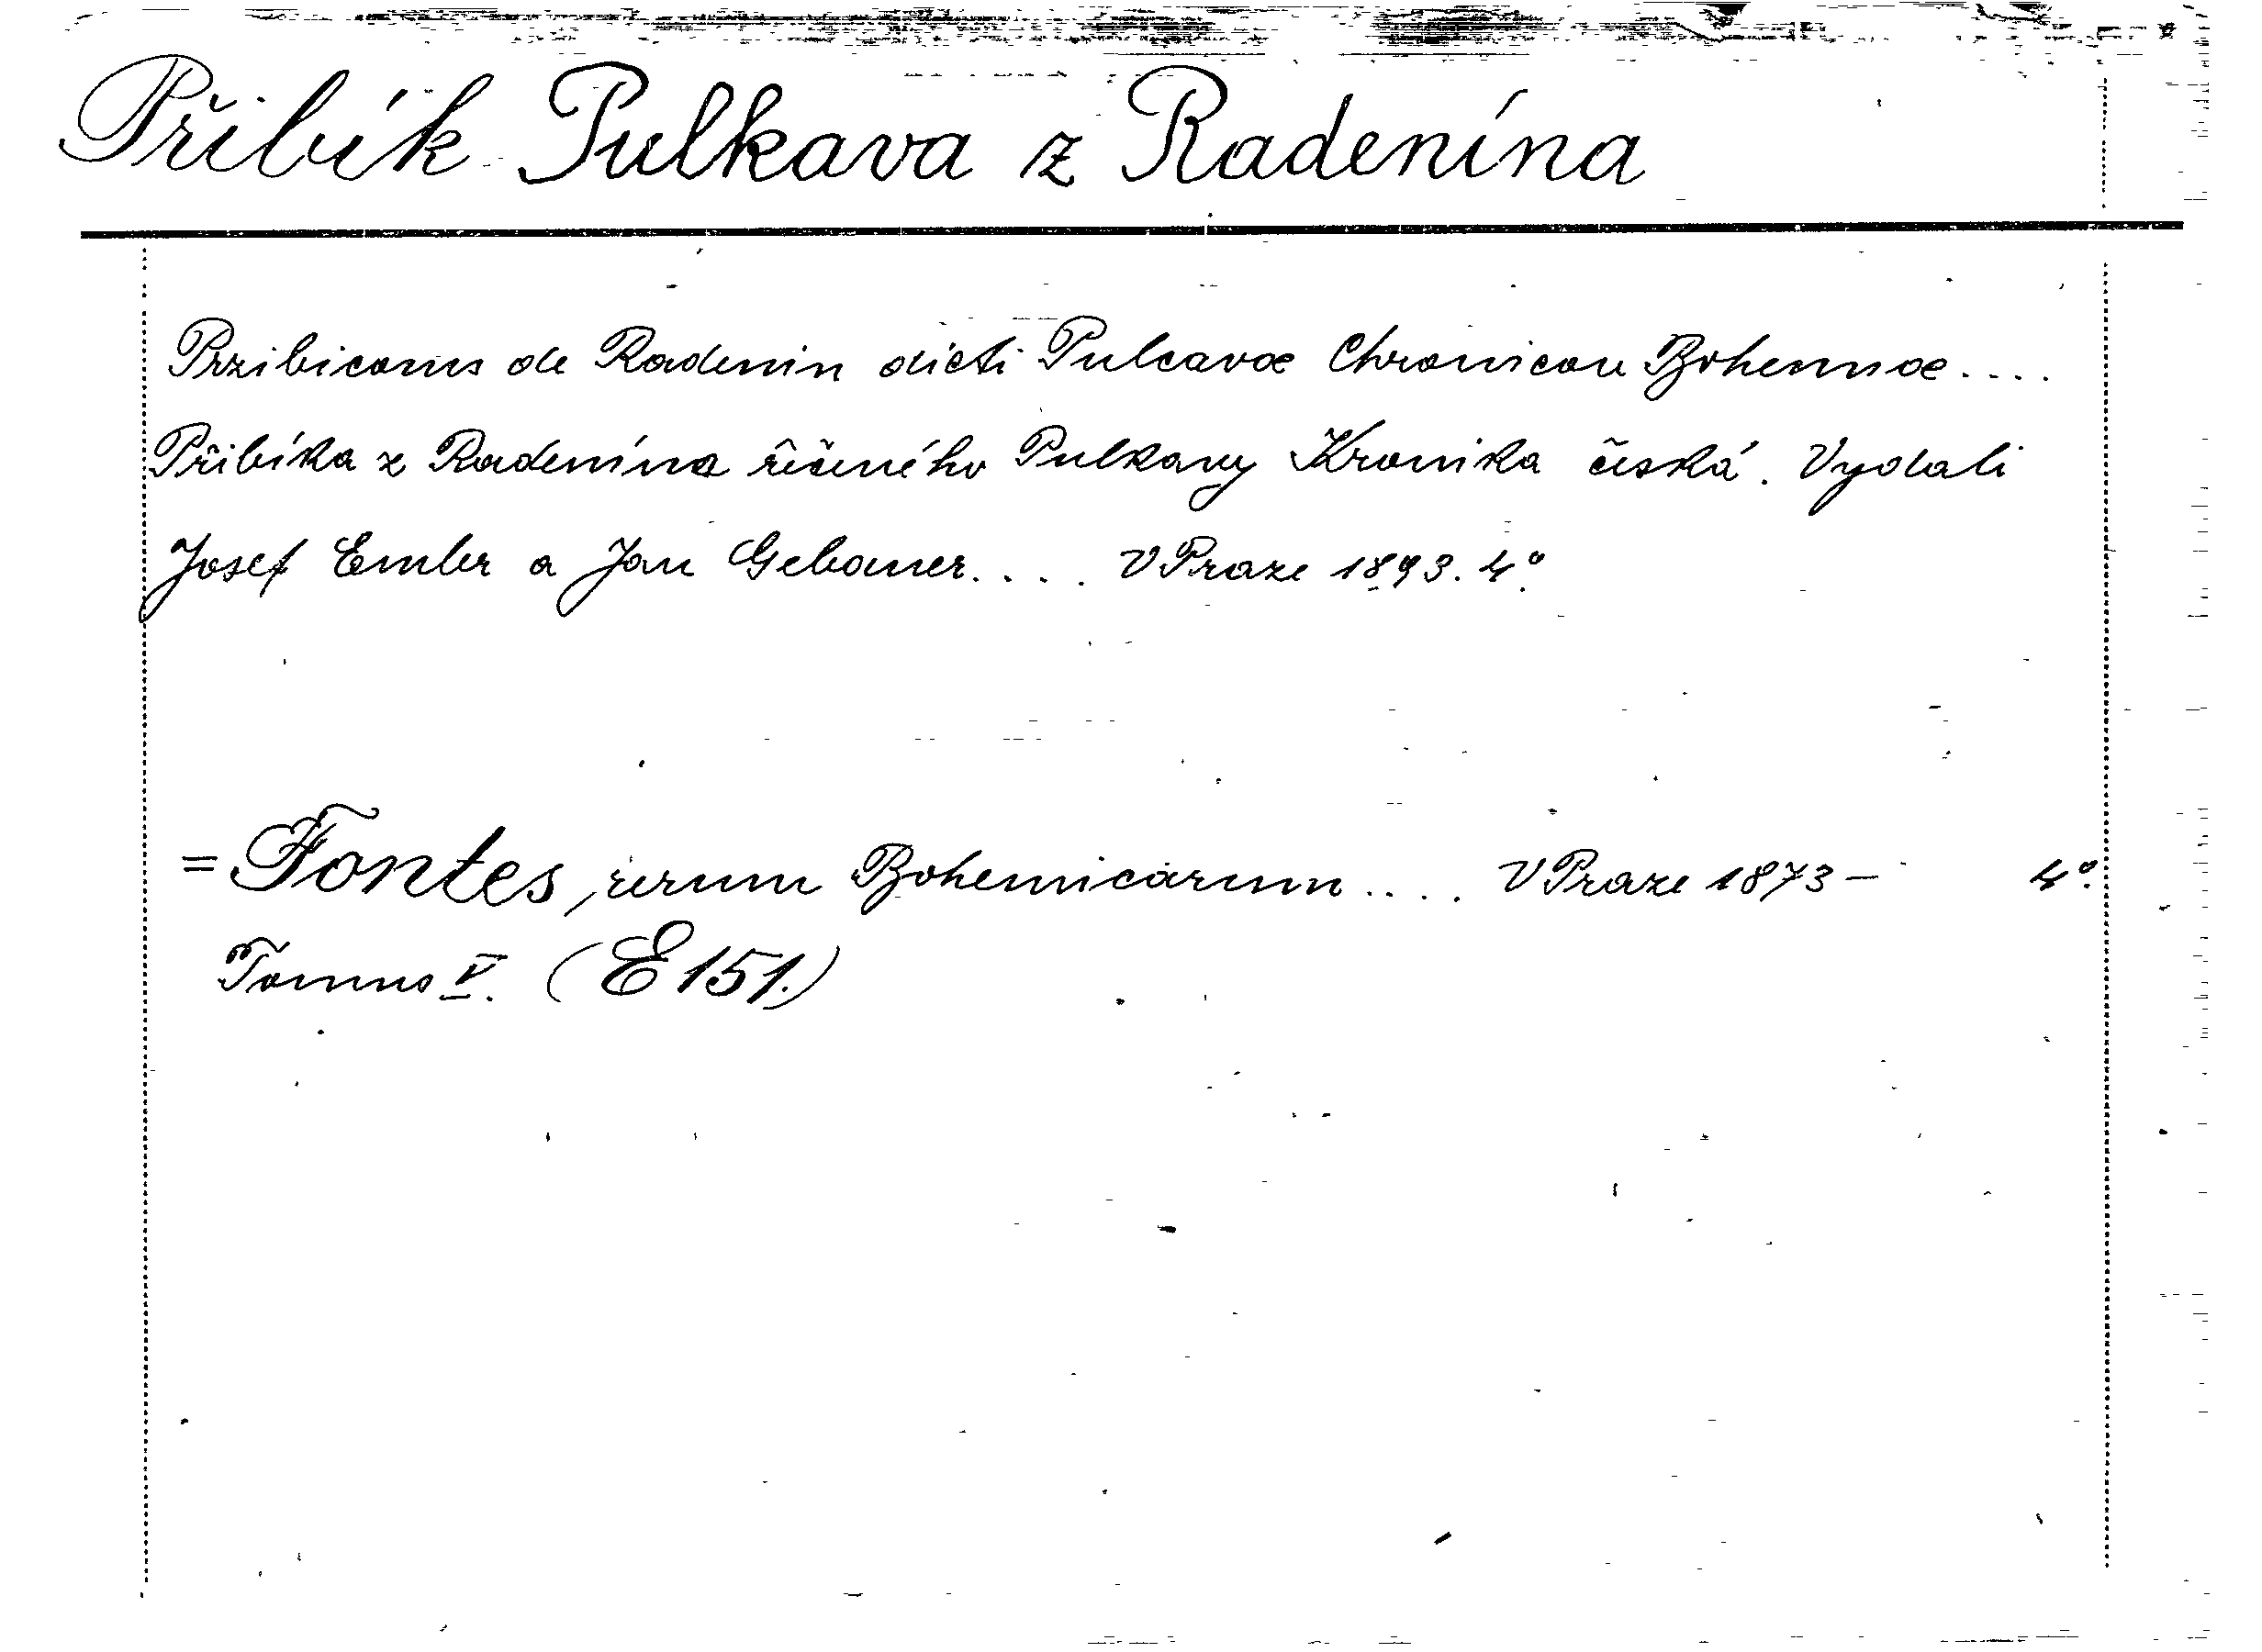 Přibík Pulkava z Radenína
Przibiconis de Radenin dicti Pulcavae Chronicon Bohemiae....
Přibíka z Radenína řečeného Pulkavy Kronika česká. Vydali
Josef Emler a Jan Gebauer.... V Praze 1893. 4°.
= Fontes rerum Bohemicarum.... V Praze 1873 - 4°.
Tomus V. (E 151.)